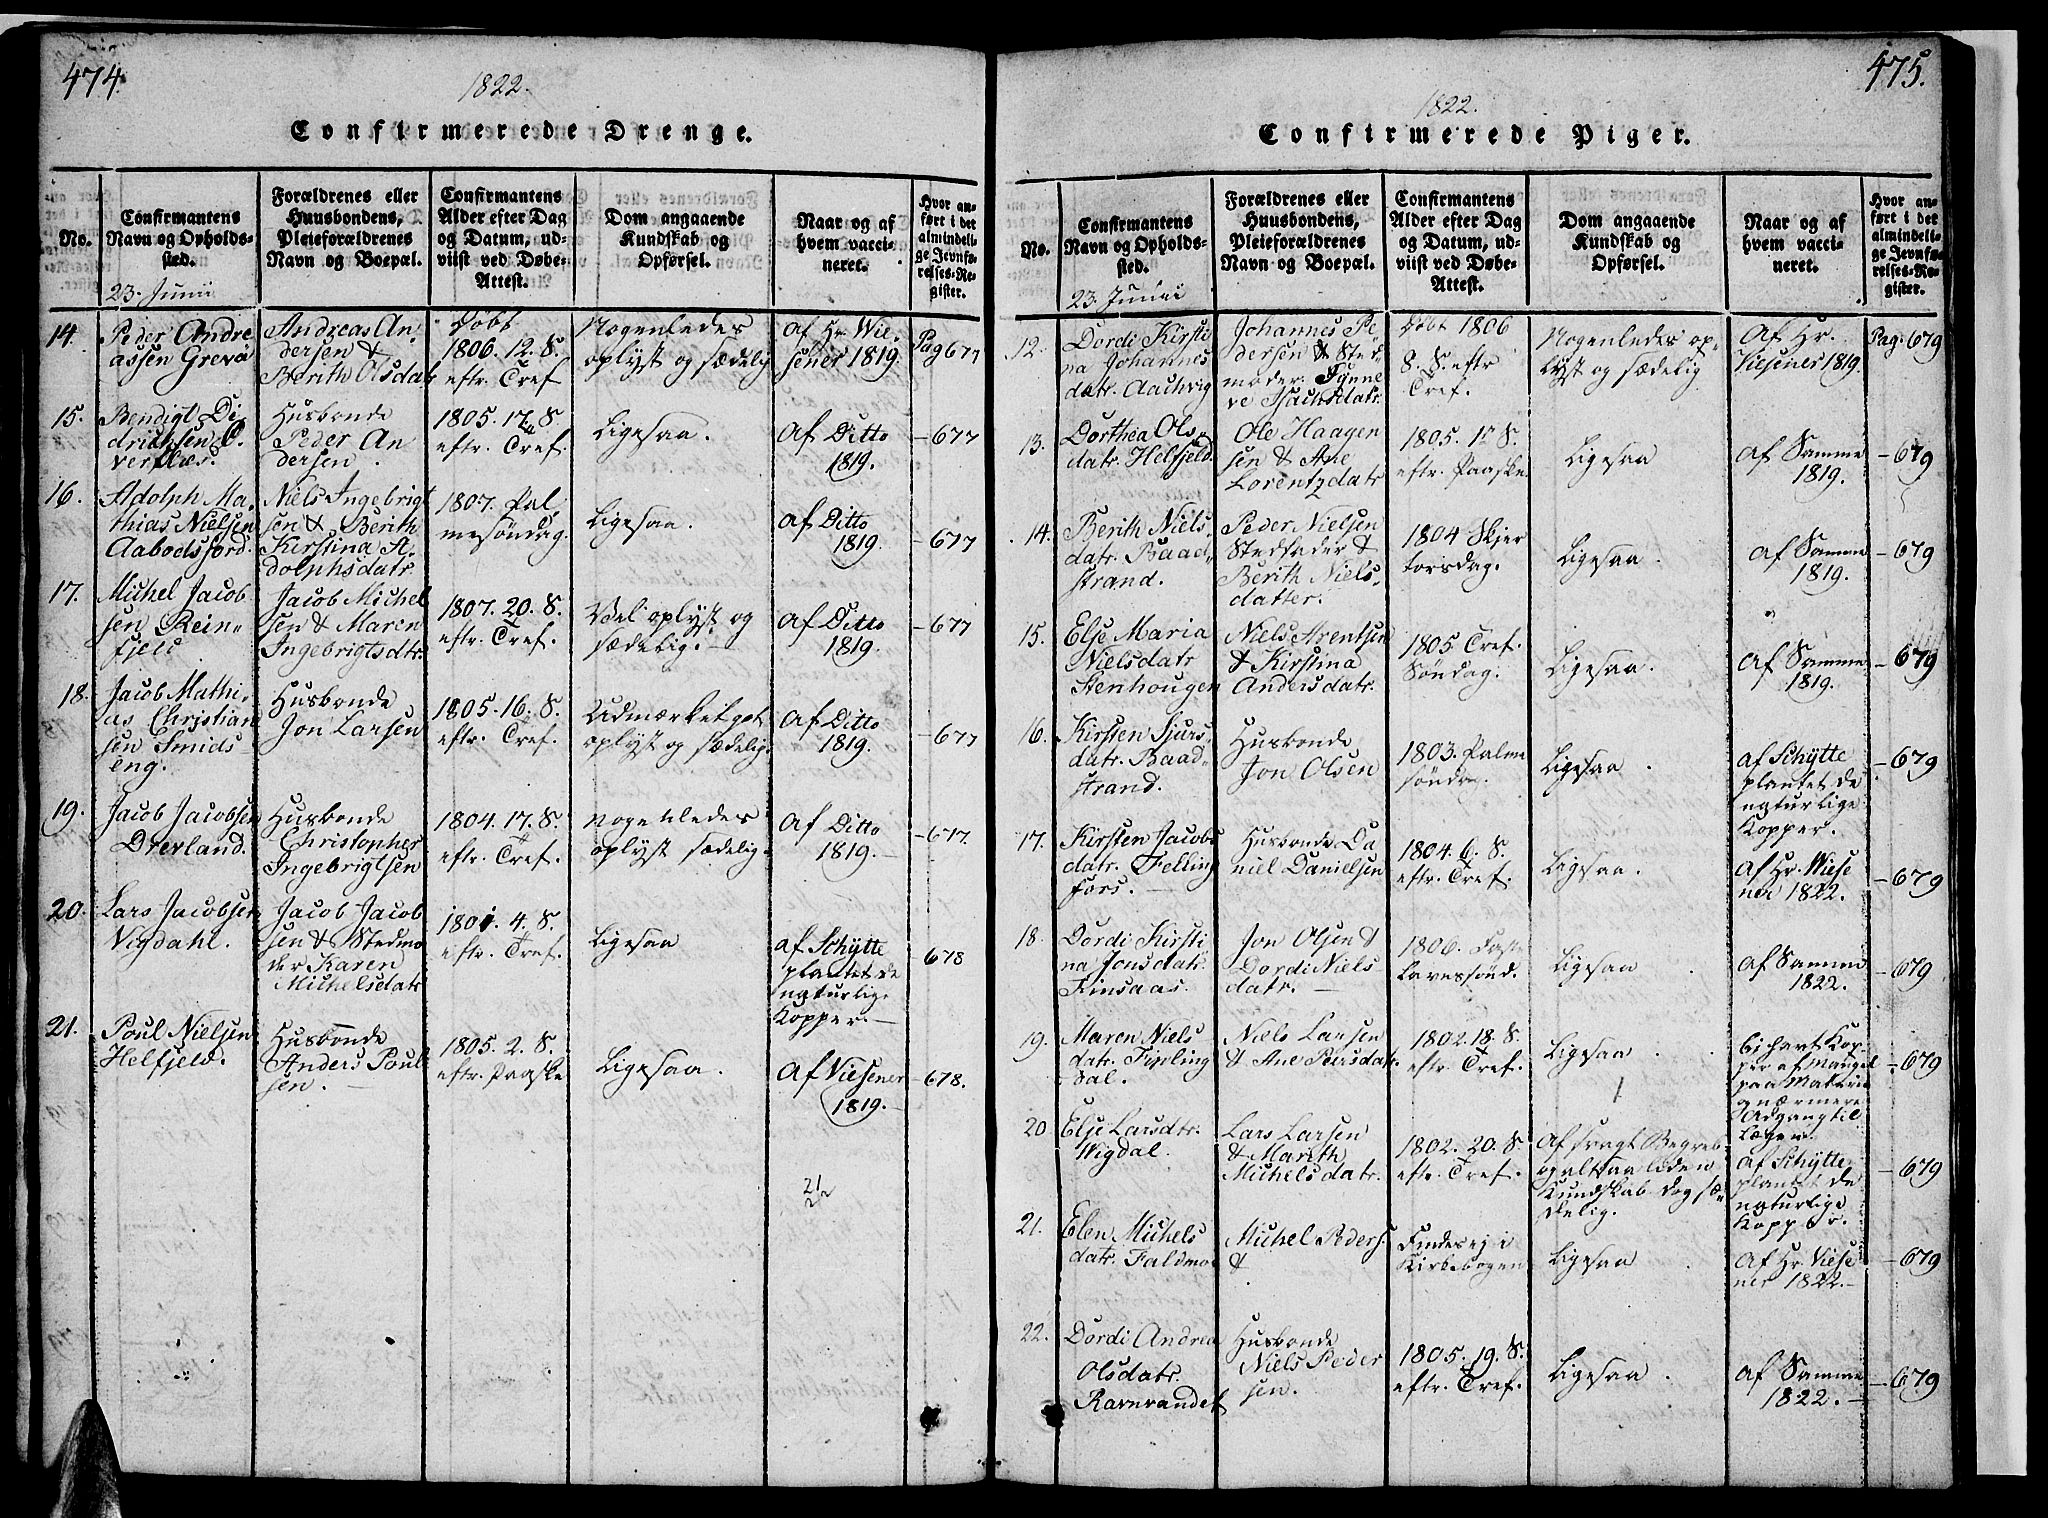 474.
1822.
Confirmerede Drenge.
No.
Confirmantens
Navn og Opholds-
sted.
23. Junii
Forældrenes eller
Huusbondens,
Pleieforældrenes
Navn og Boepæl.
Confirmantens
Alder efter Dag
og Datum, ud-
viist ved Døbe-
Attest.
Dom angaaende
Kundskab og
Opførsel.
Naar og af
hvem vacci-
neret.
Hvor an-
ført i det
almindeli-
ge Jevnfø-
relses-Re-
gister.
14.
Peder Andre
assen Grevo
Andreas An-
dersen &
Berith Olsdatr
Døbt
1806. 12. S.
eftr. Tref
Nogenledes
oplyst og sædelig
af Hr. Wie-
sener 1819.
Pag 677
15.
Bendigt Di-
drichsen
Husbonde
Peder An
dersen.
1805. 17. S.
eftr. Tref.
Ligesaa.
af Ditto
1819.
- 677
16.
Adolph Ma-
thias Nielsen
Aabodsjord.
Niels Ingebrigt
sen & Berith
Kirstina A-
dolphsdatr
1807. Pal-
mesøndag.
Ligesaa.
af Ditto
1819.
- 677
17.
Michel Jacob
sen Rein-
fjeld
Jacob Michel
sen & Maren
Ingebrigtsdtr.
1807. 20. S.
eftr. Tref.
Vel oplyst og
sædelig. -
af Ditto
1819.
- 677
18.
Jacob Mathi-
as Christian
sen Smids-
eng.
Husbonde
Jon Larsen
1805. 16. S.
eftr. Tref.
Udmærket got
oplyst og sædelig.
af Ditto
1819.
- 677
19.
Jacob Jacobsen
Drevland.
Husbonde
Christopher
Ingebrigtsen
1804. 17. S.
eftr. Tref.
nogenledes
oplyst sædelig.
af Ditto
1819. -
- 677.
20.
Lars Jacobsen
Vigdahl.
Jacob Jacob
sen & Stedmo
der Karen
Michelsdatr
1801. 4. S.
eftr. Tref.
Ligesaa
af Schytte
plantet de
naturlige
Kopper. -
678
21.
Poul Nielsen
Helfjeld.
Husbonde
Anders Poul
sen. -
1805. 2. S.
eftr. Paaske
Ligesaa.
af Viesener
1819. -
- 678.
475.
1822.
Confirmerede Piger.
No.
Confirmantens
Navn og Opholds-
sted.
23. Junii
Forældrenes eller
Huusbondens,
Pleieforældrenes
Navn og Boepæl.
Confirmantens
Alder efter Dag
og Datum, ud-
viist ved Døbe-
Attest.
Dom angaaende
Kundskab og
Opførsel.
Naar og af
hvem vacci-
neret.
Hvor an-
ført i det
almindeli-
ge Jevnfø-
relses-Re-
gister.
12.
Dordi Kirsti
na Johannes
datr.
Johannes Pe-
dersen & Sted
moder
Døbt 1806
8. S. eftr
Tref.
Nogenledes op-
lyst og sædelig
Af Hr.
Viesener 1819.
Pag: 679
13.
Dorthea Ols
datr. Helfjeld.
Ole Haagen
sen & Ane
Lorentzdatr
1805. 1ste S.
eftr. Paaske
Ligesaa
af Samme
1819.
- 679
14.
Berith Niels
datr. Baad
strand.
Peder Nielsen
Stedfader &
Berith Niels-
datter.
1804 Skjer
torsdag.
Ligesaa.
af Samme
1819.
- 679
15.
Else Maria
Nielsdatr
Stenhougen
Niels Arentsen
& Kirstina
Andersdatr.
1805 Tref.
Søndag.
Ligesaa.
af Samme
1819.
- 679
16.
Kirsten Sjurs-
datr. Baad-
strand.
Husbonde
Jon Olsen
1803. Palme
søndag.
Ligesaa.
af Schytte
plantet de
naturlige
Kopper.
- 679
17.
Kirsten Jacobs
datr. Felling
fors. -
Husbonde Da
niel Danielsen
1804. 6. S.
eftr. Tref.
Ligesaa.
af Hr. Wiese
ner 1822.
- 679
18.
Dordi Kirsti
na Jonsdatr.
Finsaas.
Jon Olsen &
Dordi Niels
datr. -
1806. Faste
lavessønd.
Ligesaa
af Samme
1822.
- 679
19.
Maren Niels
datr. Tiplling
dal.
Niels Larsen
& Ane Peersdatr.
1802. 18. S.
eftr. Tref.
Ligesaa
Ei havt Kop-
per af Mangel
paa Materie
og nærmere
Adgang til
Lægen.
- 679
20
Else Larsdtr.
Wigdal.
Lars Larsen
& Marith
Michelsdatr.
1802. 20. S.
eftr. Tref.
Af svagt Begreb
og altsaa liden
Kundskab dog sæ-
delig.
af Schytte
plantet de
naturlige
Kopper.
- 679
21.
Elen Michels
datr. Faldmo
Michel Peders
&
Findes ej i
Kirkebogen
Ligesaa
af Hr Viese
ner 1822. -
- 679
22.
Dordi Andrea
Olsdatr.
Ravnvandet
Husbonde
Niels Peder
sen.
1805. 19. S.
eftr. Tref.
Ligesaa.
af Samme
1822. -
- 679